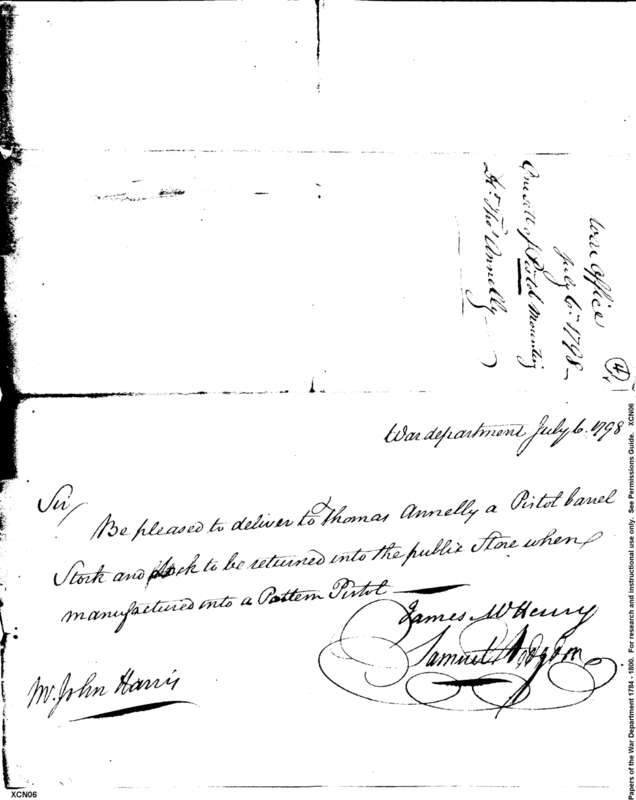 War Office
July 6th 1798
One sett of Pistol Mounting
Dd. Thos Annelly
4
War department July 6. 1798
Sir
Be pleased to deliver to Thomas Annelly a Pistol barrel
Stock and lock to be returned into the public Store when
manufactured into a Pattern Pistol
James McHenry
Samuel Hodgdon
Mr. John Harris
XCN06
Papers of the War Department 1784 - 1800. For research and instructional use only. See Permissions Guide. XCN06